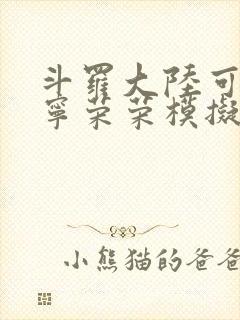 斗羅大陸可
寧荣荣模擬
小熊猫的爸爸